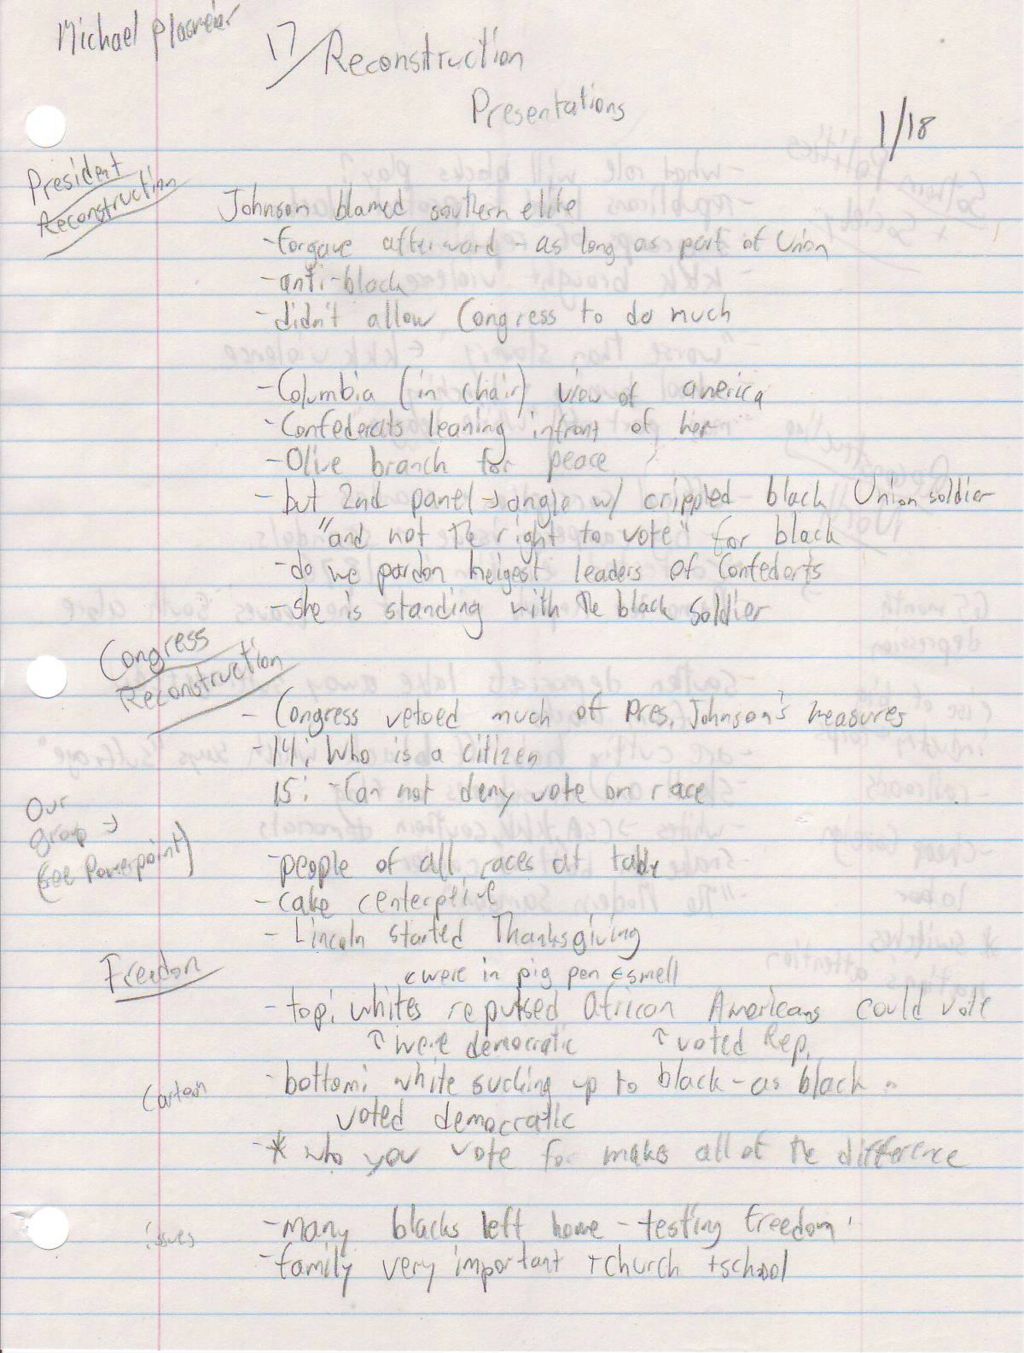 Michael Plasmeier
17/Reconstruction
Presentations
1/18
President
Reconstruction
Johnson blamed southern elite
-forgave afterward - as long as part of Union
-anti-black
-didn't allow Congress to do much
-Columbia (in chair) view of america
-Confederats leaning infront of her
-Olive branch for peace
-but 2nd panel → angle w/ crippled black Union soldier
"and not the right to vote" for black
-do we pardon heigest leaders of Confederts
-she is standing with the black soldier
Congress
Reconstruction
- Congress vetoed much of Pres. Johnson's measures
-14: Who is a citizen
15: -Can not deny vote on race
Our
group →
(see Powerpoint)
-people of all races at table
-cake centerpeive
- Lincoln started Thanksgiving
Freedom
were in pig pen ← smell
-top: whites repulsed African Americans could vote
↑ were democratic ↑ voted Rep.
Cartoon
-bottom: white sucking up to black - as black
voted democratic
-* who you vote for makes all of the difference
issues
-many blacks left home - testing freedom
-family very important +church +school